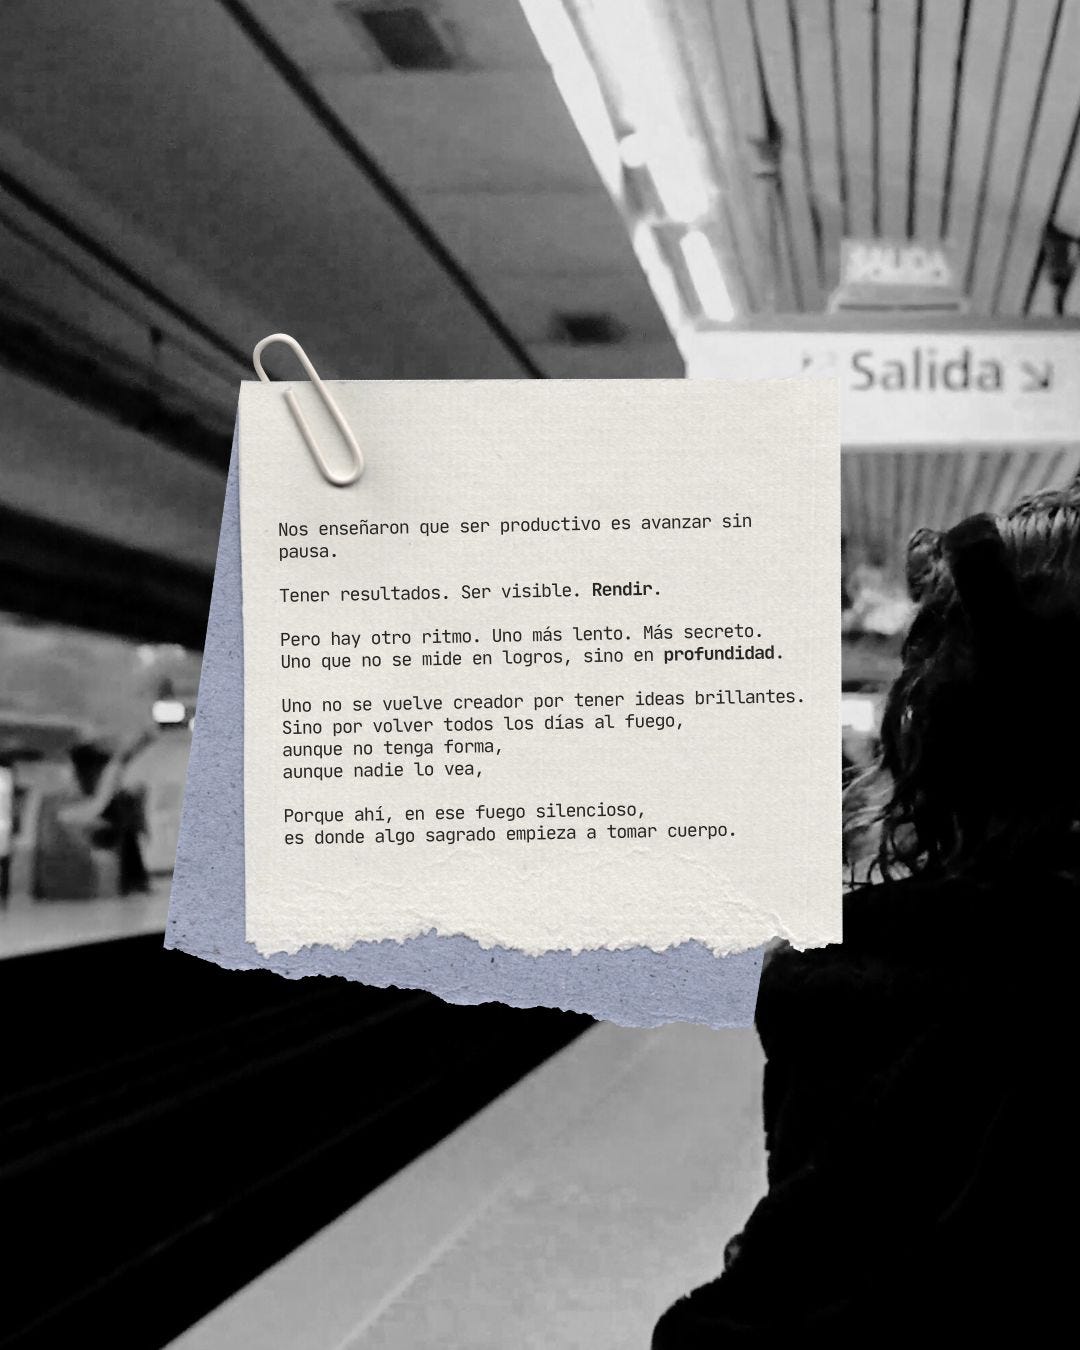 SALIDA
Salida ↘
Nos enseñaron que ser productivo es avanzar sin
pausa.
Tener resultados. Ser visible. Rendir.
Pero hay otro ritmo. Uno más lento. Más secreto.
Uno que no se mide en logros, sino en profundidad.
Uno no se vuelve creador por tener ideas brillantes.
Sino por volver todos los días al fuego,
aunque no tenga forma,
aunque nadie lo vea,
Porque ahí, en ese fuego silencioso,
es donde algo sagrado empieza a tomar cuerpo.